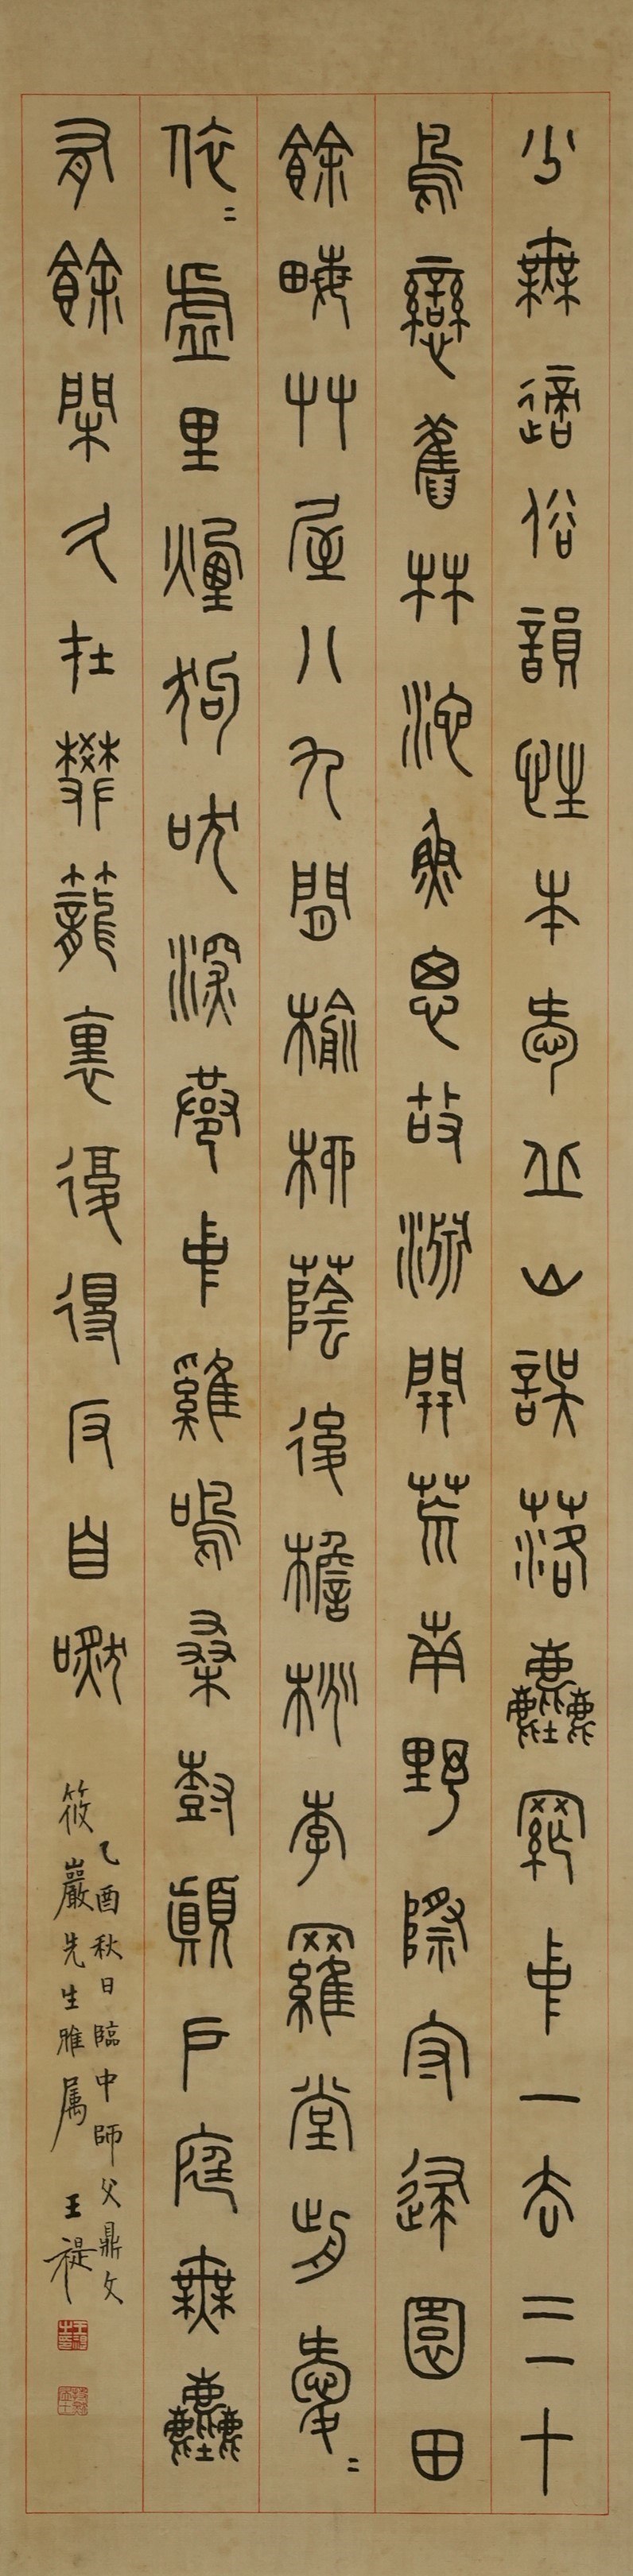 少無適俗韻性本愛丘山誤落塵网中一去三十
鳥戀舊林池魚思故淵開荒南野際守歸園田
餘畮艸屋八九間榆柳蔭後檐桃李羅堂前愛〻
依〻虛里煙狗吠深巷中雞鳴桑樹顛戶庭無塵
有餘閒久在樊籠裏復得反自然
乙酉秋日臨中師父鼎文
筱巖先生雅属 王禔